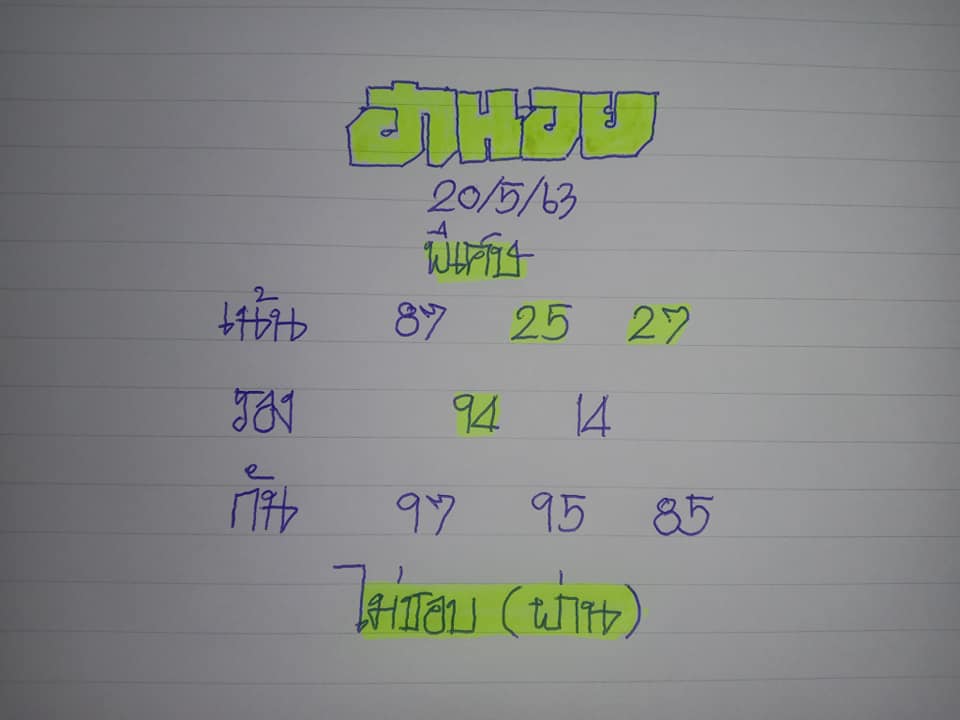 ฮานอย
20/5/63
พิเศษ
เน้น 87 25 27
รอง 94 14
กัน 97 95 85
ไม่ชอบ (ผ่าน)